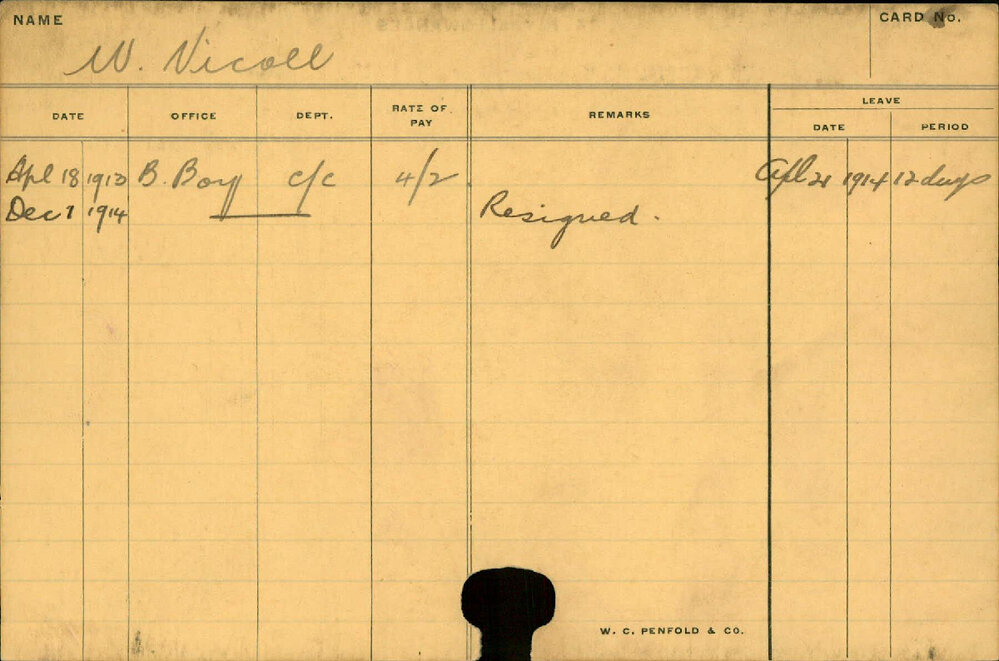 NAME
CARD No.
W. Nicoll
DATE OFFICE DEPT. RATE OF PAY REMARKS LEAVE
DATE PERIOD
Apl 18 1913 B. Boy c/c 4/2 Apl 21 1914 12 days
Dec 7 1914 Resigned.
W. C. PENFOLD & CO.